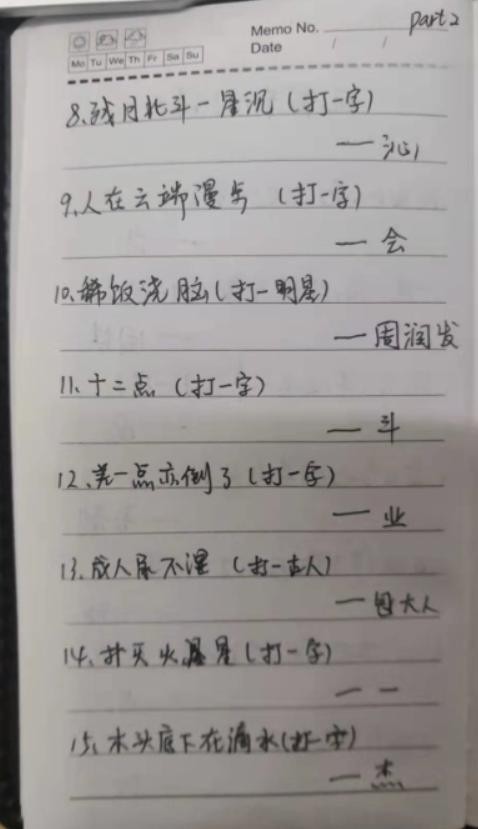 Part 2
Memo No.
Mo Tu We Th Fr Sa Su
Date / /
8、残月北斗一星沉(打一字)
— 沁
9、人在云端漫步 (打一字)
— 会
10、稀饭浇脑(打一明星)
— 周润发
11、十二点 (打一字)
— 斗
12、差一点亦倒了(打一字)
— 业
13、成人尿不湿 (打一古人)
— 包大人
14、扑灭火星(打一字)
— 一
15、木头底下在滴水(打一字)
— 杰